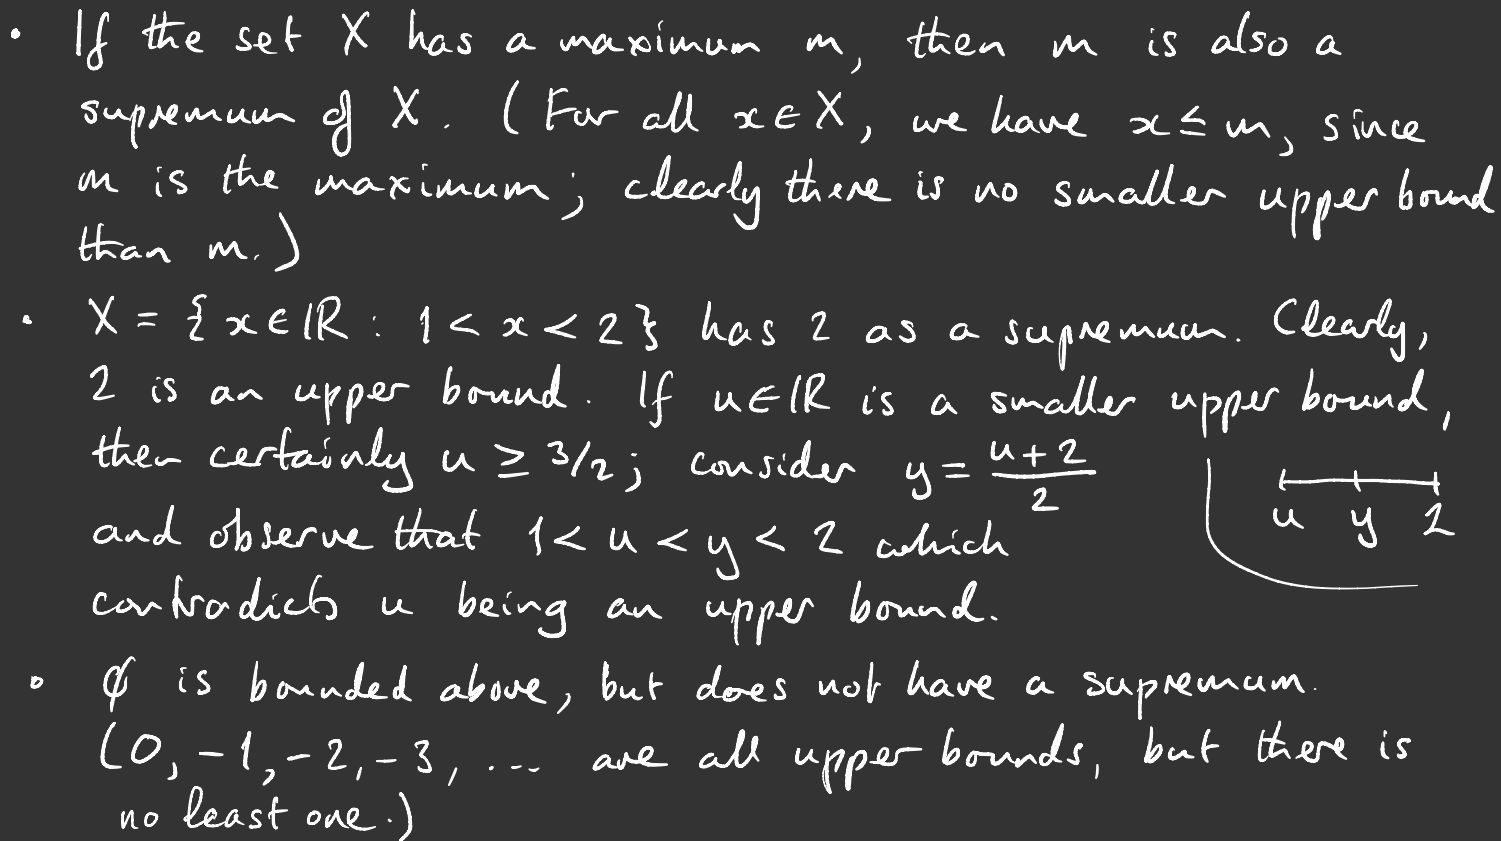 • If the set X has a maximum m, then m is also a
supremum of X. (For all x ∈ X, we have x ≤ m, since
m is the maximum; clearly there is no smaller upper bound
than m.)
• X = {x ∈ ℝ : 1 < x < 2} has 2 as a supremum. Clearly,
2 is an upper bound. If u ∈ ℝ is a smaller upper bound,
then certainly u ≥ 3/2; consider y = (u+2)/2
and observe that 1 < u < y < 2 which
contradicts u being an upper bound.
u y 2
• ∅ is bounded above, but does not have a supremum.
(0, -1, -2, -3, ... are all upper bounds, but there is
no least one.)